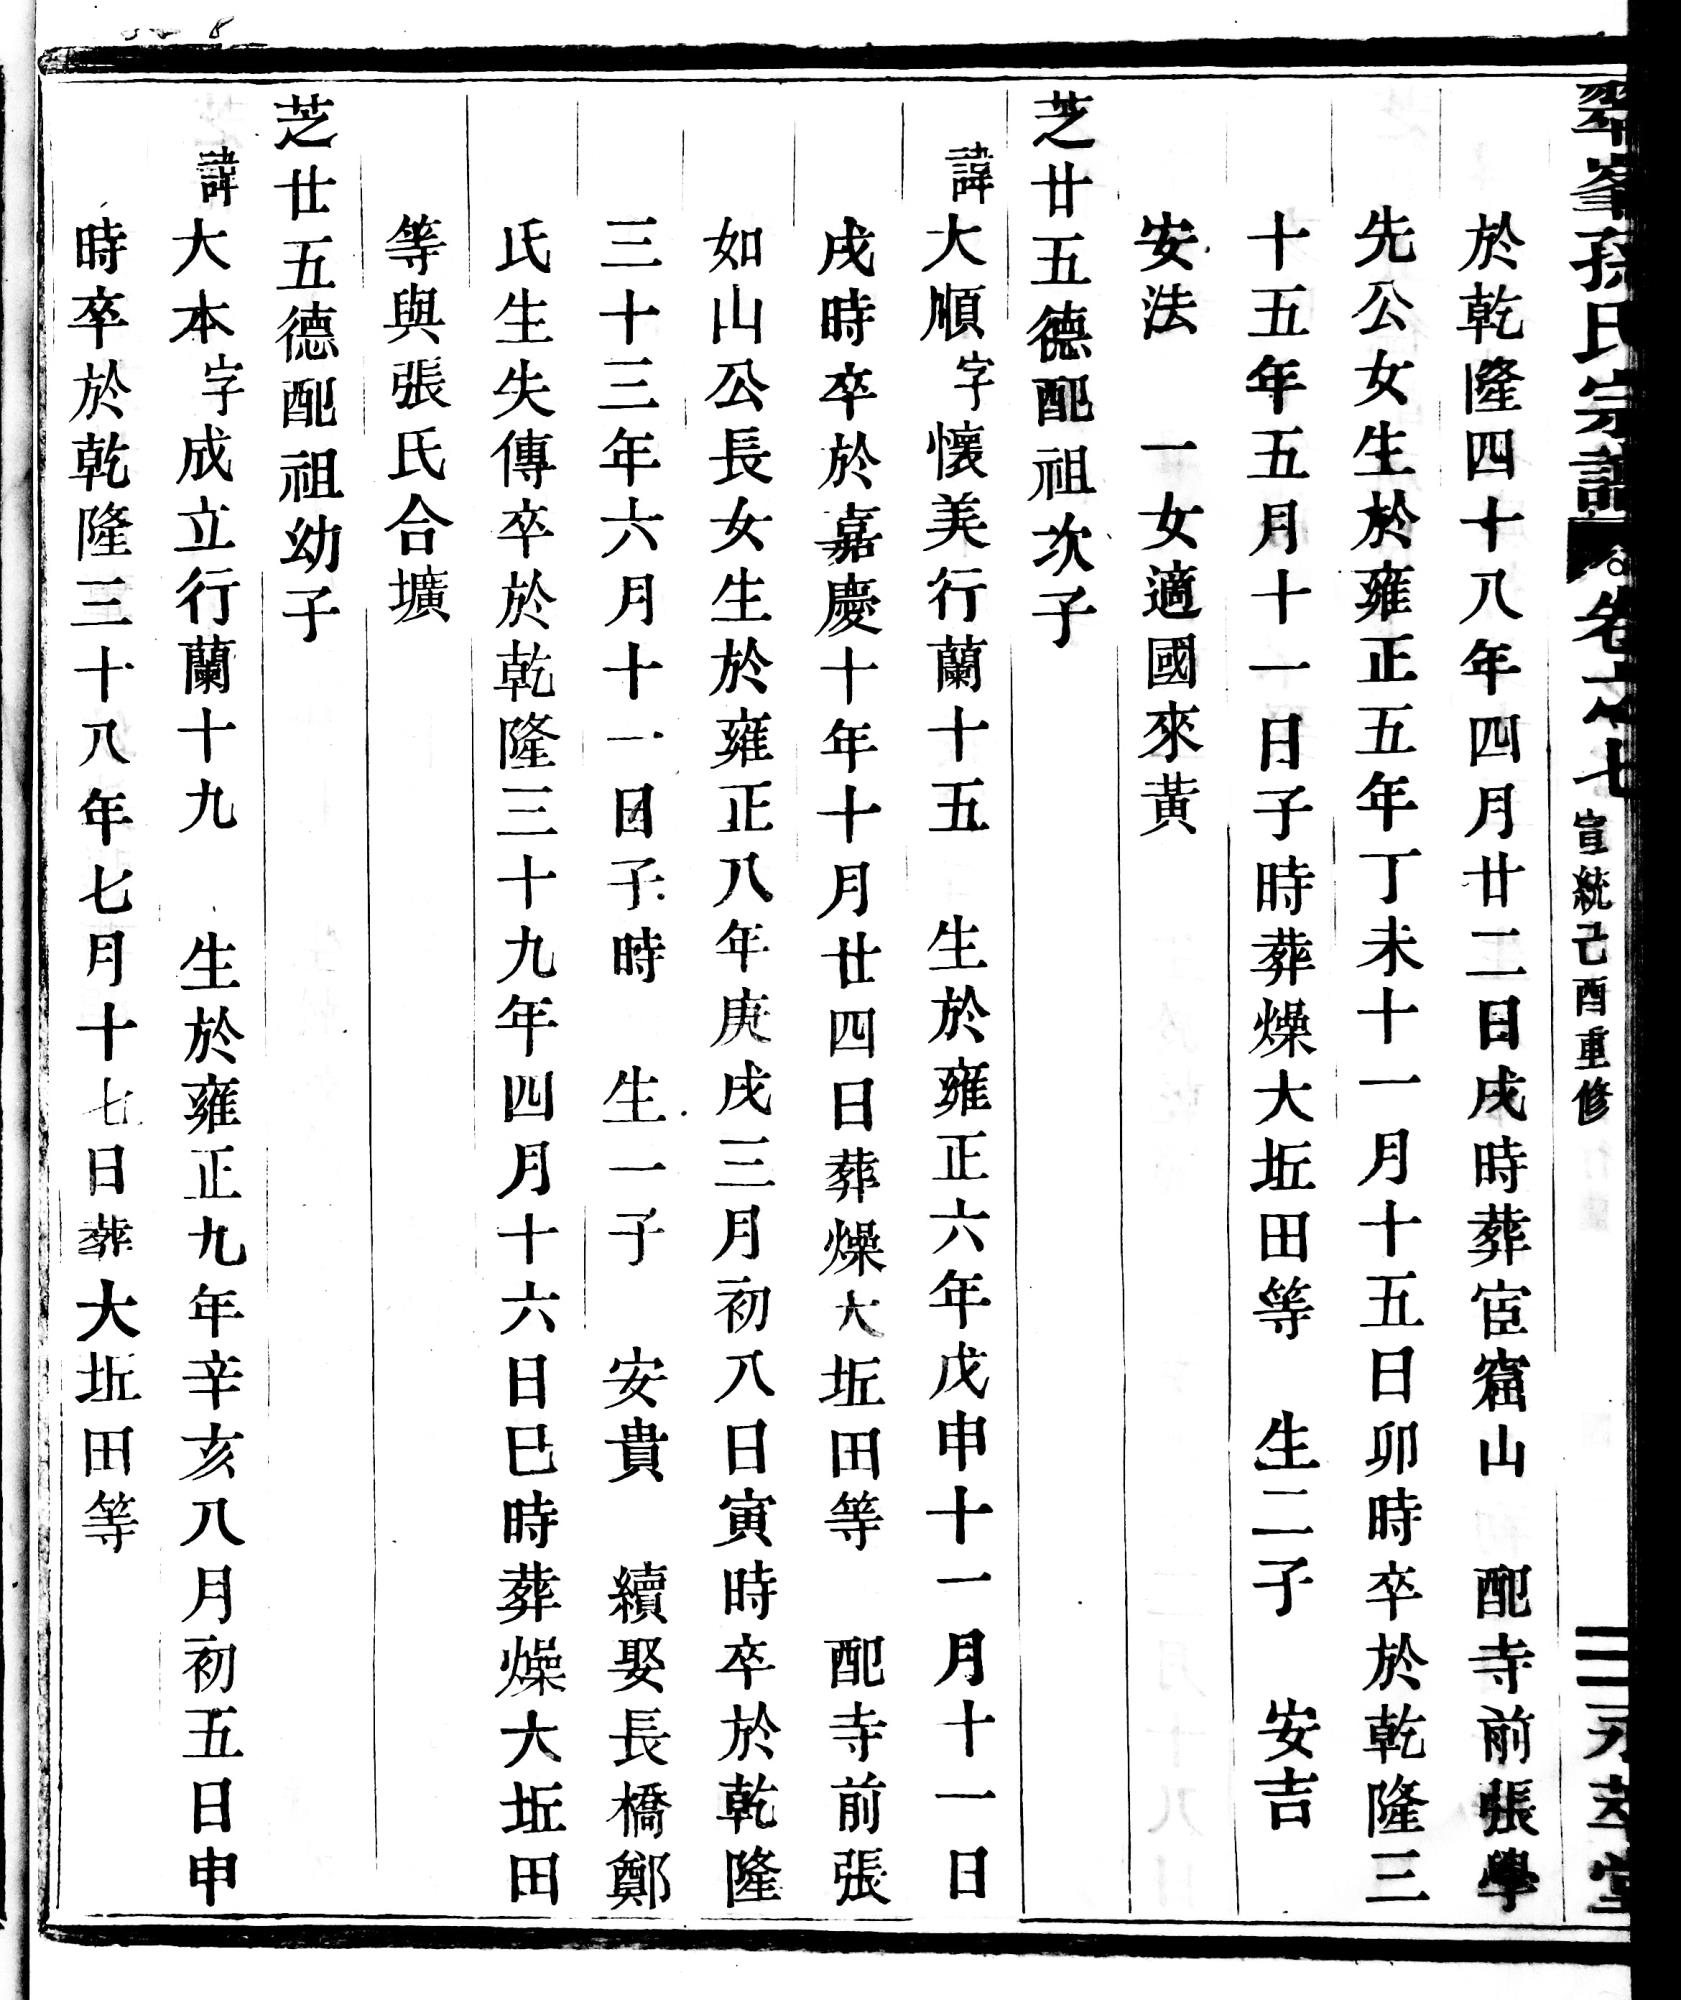 翠峯孫氏宗譜 卷之七 宣統己酉重修 三 永萃堂
於乾隆四十八年四月廿二日戌時葬宦窟山 配寺前張學
先公女生於雍正五年丁未十一月十五日卯時卒於乾隆三
十五年五月十一日子時葬燥大坵田等 生二子 安吉
安法 一女適國來黃
芝廿五德配祖次子
諱大順字懷美行蘭十五 生於雍正六年戊申十一月十一日
戌時卒於嘉慶十年十月廿四日葬燥大坵田等 配寺前張
如山公長女生於雍正八年庚戌三月初八日寅時卒於乾隆
三十三年六月十一日子時 生一子 安貴 續娶長橋鄭
氏生失傳卒於乾隆三十九年四月十六日巳時葬燥大坵田
等與張氏合壙
芝廿五德配祖幼子
諱大本字成立行蘭十九 生於雍正九年辛亥八月初五日申
時卒於乾隆三十八年七月十七日葬大坵田等